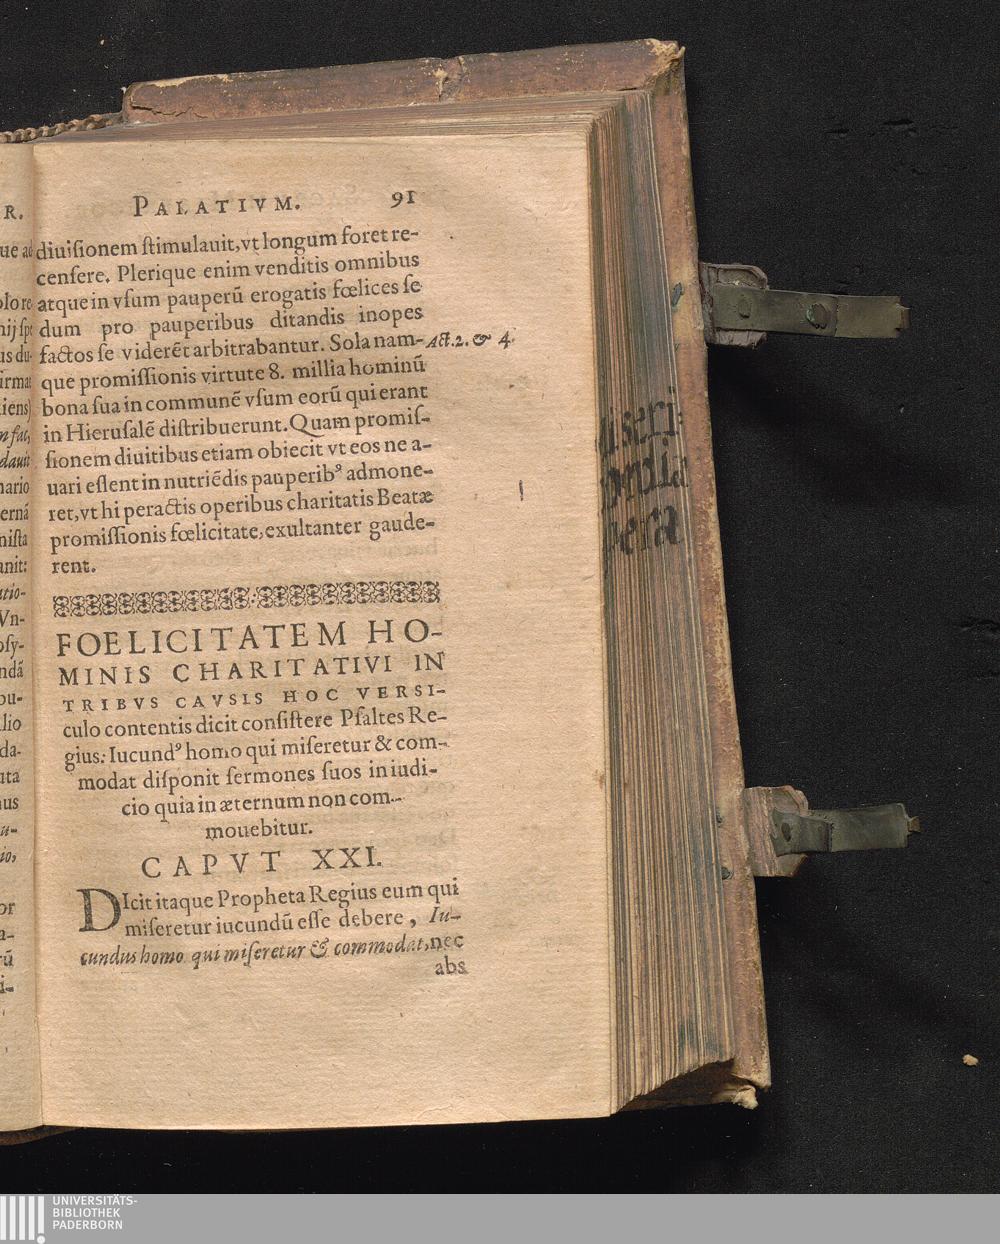 PALATIVM. 91
diuisionem stimulauit, vt longum foret re-
censere. Plerique enim venditis omnibus
atque in vsum pauperũ erogatis fœlices se
dum pro pauperibus ditandis inopes
factos se viderẽt arbitrabantur. Sola nam-
Act. 2. & 4.
que promissionis virtute 8. millia hominũ
bona sua in communẽ vsum eorũ qui erant
in Hierusalẽ distribuerunt. Quam promis-
sionem diuitibus etiam obiecit vt eos ne a-
uari essent in nutriẽdis pauperibꝰ admone-
ret, vt hi peractis operibus charitatis Beatæ
promissionis fœlicitate, exultanter gaude-
rent.
FOELICITATEM HO-
MINIS CHARITATIVI IN
TRIBVS CAVSIS HOC VERSI-
culo contentis dicit consistere Psaltes Re-
gius: Iucundꝰ homo qui miseretur & com-
modat disponit sermones suos in iudi-
cio quia in æternum non com-
mouebitur.
CAPVT XXI.
DIcit itaque Propheta Regius eum qui
miseretur iucundũ esse debere, Iu-
cundus homo qui miseretur & commodat, nec
abs
R.
ue ad
olore
nij spe
us du-
irmat
iens)
n fac,
dauit
nario
ernã
nista
anit:
atio-
Vn-
osy-
ndã
bu-
lio
da-
uta
nus
u-
io,
or
a-
rũ
i-
UNIVERSITÄTS-
BIBLIOTHEK
PADERBORN